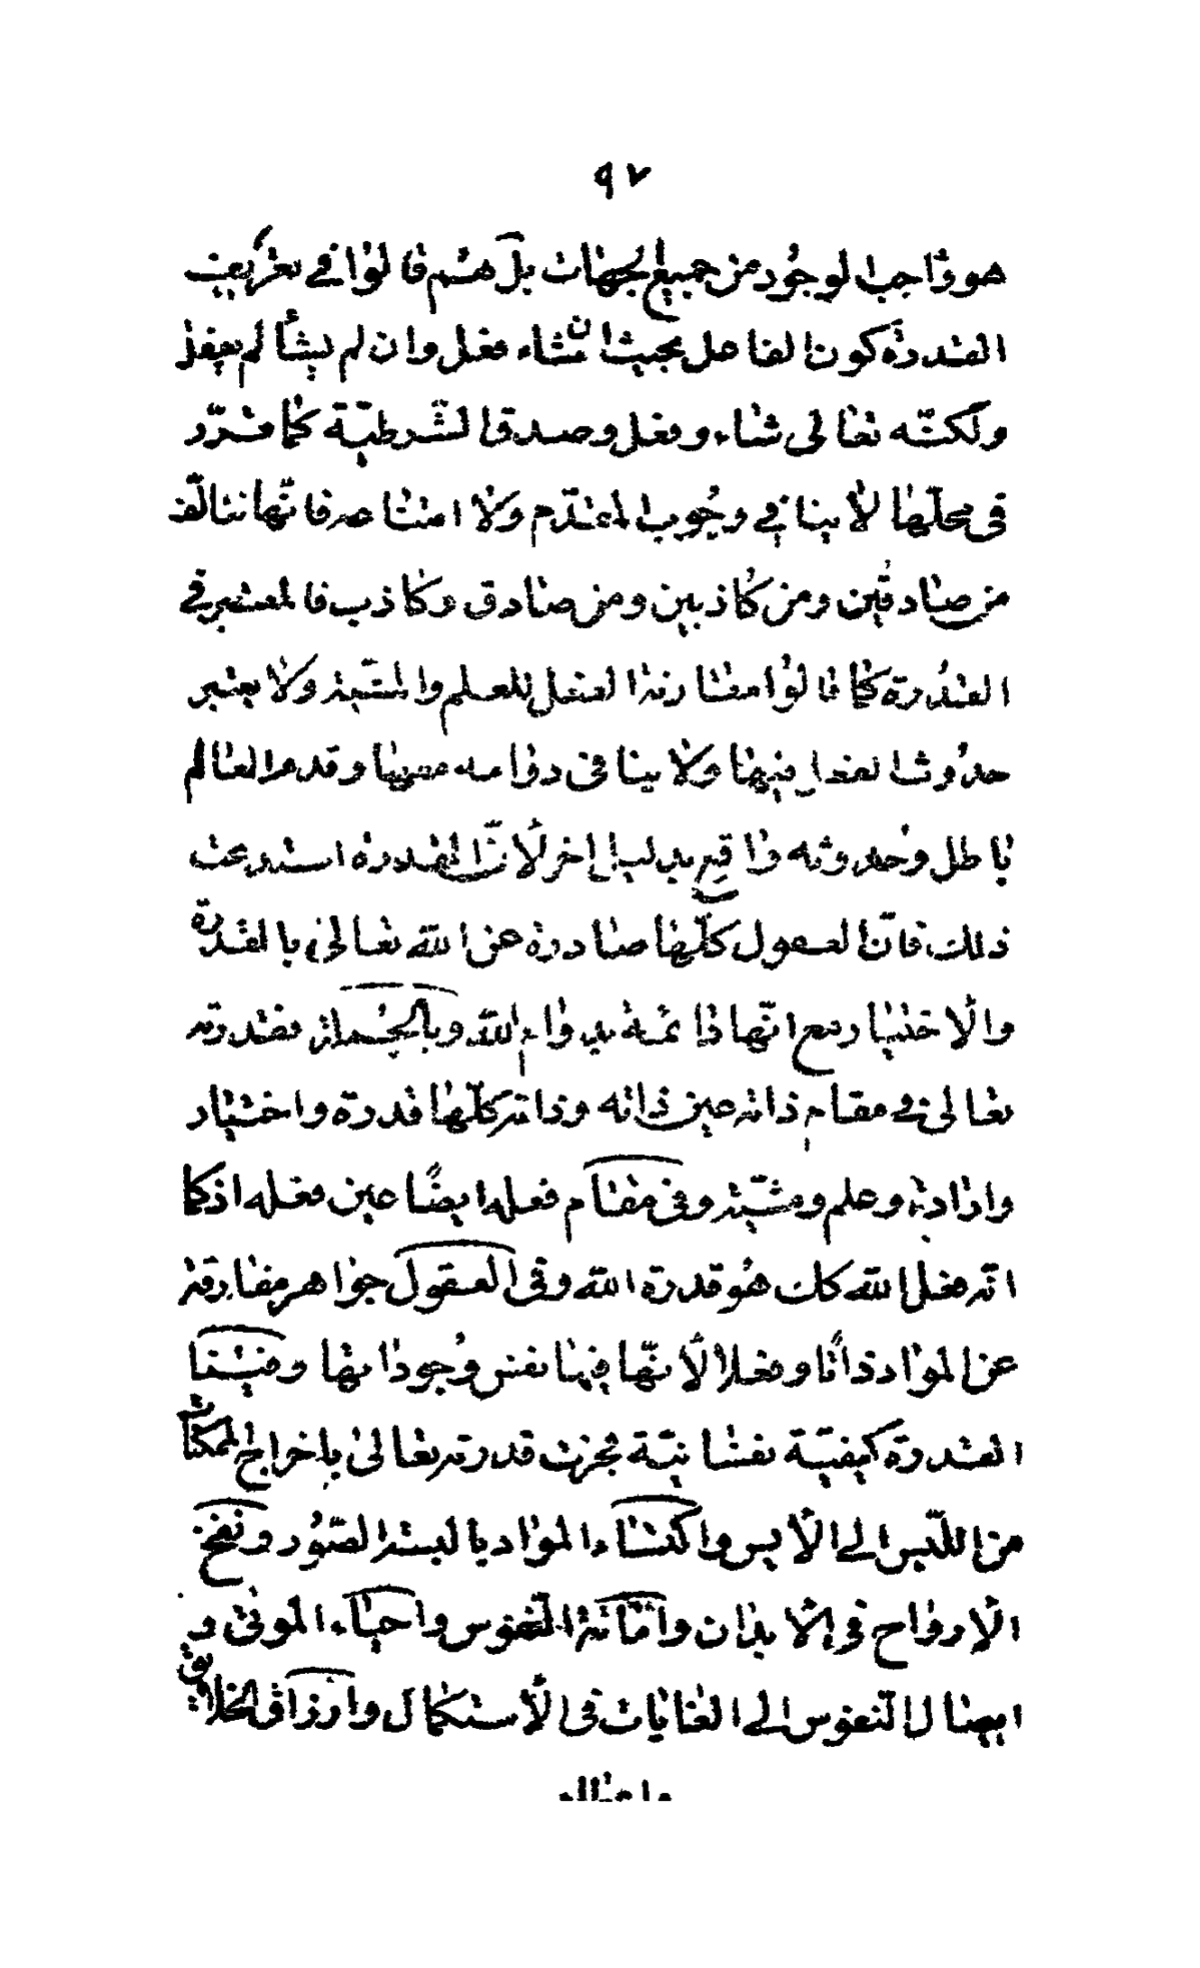 ٩٧
هو واجب الوجود من جميع الجهات بل هم قالوا في تعريف
القدرة كون الفاعل بحيث ان شاء فعل وان لم يشأ لم يفعل
ولكنّه تعالى شاء وفعل وصدق الشّرطيّة كما قرّر
فى محلّها لا ينافي وجوب المقدّم ولا امتناعه فانّها تتالّف
من صادقين ومن كاذبين ومن صادق وكاذب فالمعتبر في
القدرة كما قالوا مقارنة الفعل للعلم والمشيّة ولا يعتبر
حدوث الفعل فيها ولا ينافى دوامه معها وقدم العالم
باطل وحدوثه واقع بدليل اخر لا انّ القدرة استدعت
ذلك فانّ العقول كلّها صادرة عن اللّه تعالى بالقدرة
والاختيار مع انّها دائمة بدوام اللّه وبالجملة فقدرته
تعالى في مقام ذاته عين ذاته وذاته كلّها قدرة واختيار
وارادة وعلم ومشيّة وفى مقام فعله ايضًا عين فعله اذ كما
انّه فعل اللّه كك هو قدرة اللّه وفى العقول جواهر مفارقة
عن المواد ذاتًا وفعلا لأنّها فيها نفس وجوداتها وفينا
القدرة كيفيّة نفسانيّة فجرت قدرته تعالى بإخراج الممكنات
من اللّيس الى الأيس واكتساء المواد بالبسة الصّور ونفخ
الارواح فى الابدان واماتة النّفوس واحياء الموتى و
ايصال النّفوس الى الغايات فى الأستكمال وارزاق الخلائق